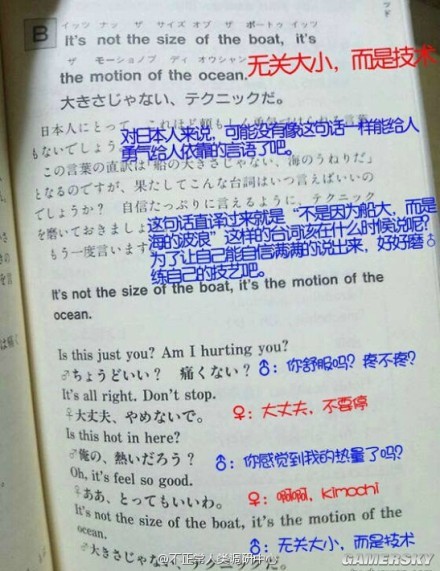 ツド
イッツ ナッ ザ サイズ オブ ザ ボートゥ イッツ
B It's not the size of the boat, it's
ザ モーションオブ ディ オウシャン
the motion of the ocean.
无关大小，而是技术
大きさじゃない、テクニックだ。
日本人にとって、これほど頼もしい勇気
もないでしょう
对日本人来说，可能没有像这句话一样能给人
勇气给人依靠的言语了吧。
この言葉の直訳は「船の大きさじゃない、海のうねりだ」
となるのですが、果たしてこんな台詞はいつ言えばいいの
でしょうか？ 自信たっぷりに言えるように、テクニック
を磨いておきましょ
もう一度言います
这句话直译过来就是“不是因为船大，而是
海的波浪”这样的台词该在什么时候说呢？
为了让自己能自信满满的说出来，好好磨
练自己的技艺吧。
It's not the size of the boat, it's the motion of the
ocean.
Is this just you? Am I hurting you?
♂ちょうどいい？ 痛くない？
♂：你舒服吗？疼不疼？
It's all right. Don't stop.
♀大丈夫、やめないで。
♀：大丈夫，不要停
Is this hot in here?
♂俺の、熱いだろう？
♂：你感觉到我的热量了吗？
Oh, it's feel so good.
♀ああ、とってもいいわ。
♀：啊啊，kimochi
It's not the size of the boat, it's the motion of the
ocean.
♂大きさじゃない、テクニックだ。
♂：无关大小，而是技术
@不正常人类调研中心
GAMERSKY